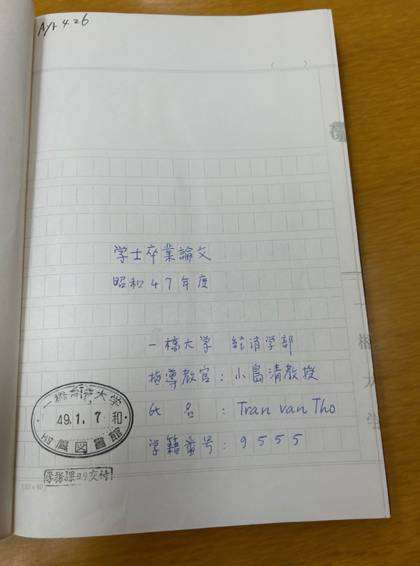 Ayt 4.26
学士卒業論文
昭和47年度
一橋大学 経済学部
指導教官：小島清教授
氏名：Tran Van Tho
学籍番号：9555
一橋大学
49.1.7 和
図書館
学務課ヨリ交付
一橋大学